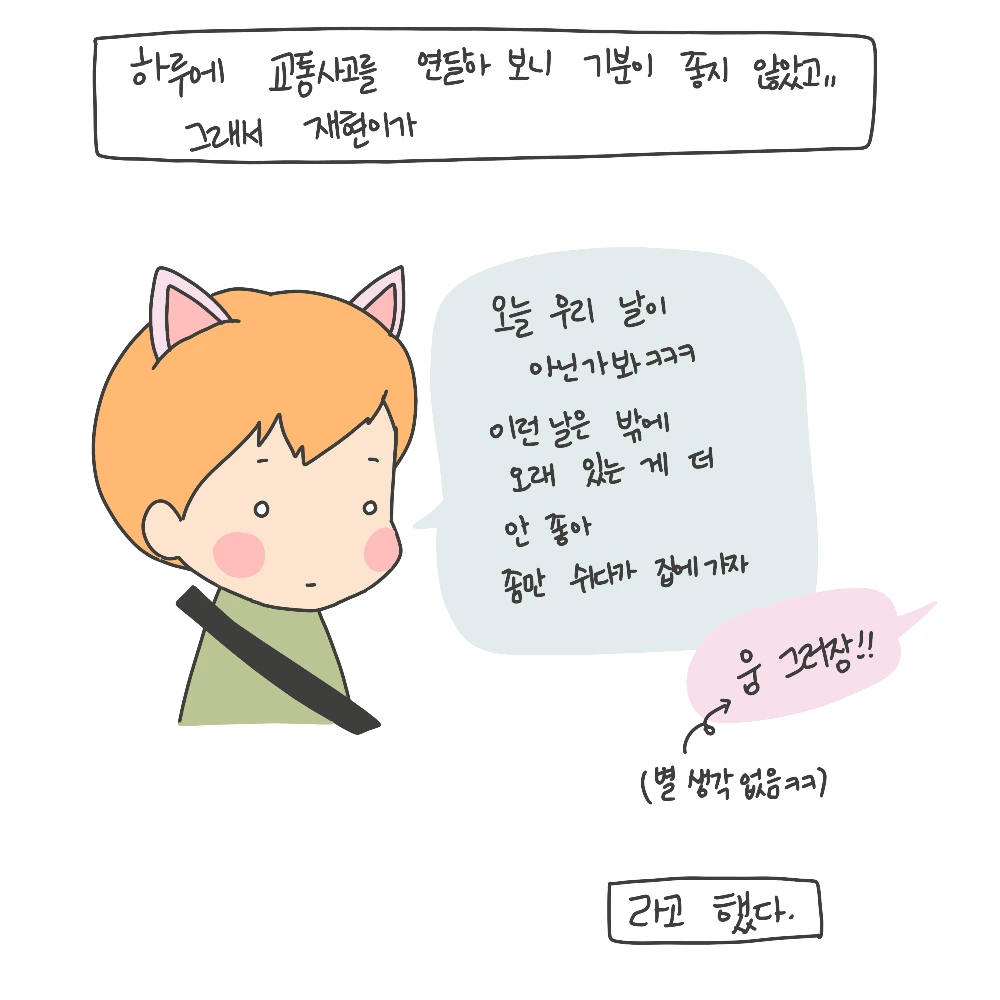 하루에 교통사고를 연달아 보니 기분이 좋지 않았고,,
그래서 재현이가
오늘 우리 날이
아닌가봐ㅋㅋㅋ
이런 날은 밖에
오래 있는 게 더
안 좋아
좀만 쉬다가 집에 가자
웅 그러장!!
(별 생각 없음ㅋㅋ)
라고 했다.